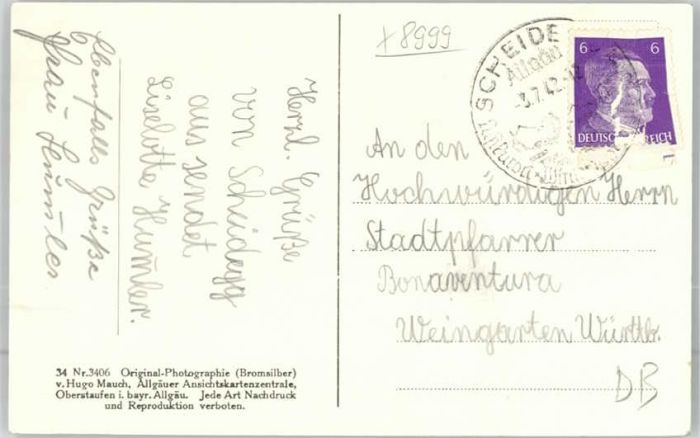 x 8999
SCHEIDE
Allgäu
-3.7.42-12
6 6
DEUTSCHES REICH
An den
Hochwürdigen Herrn
Stadtpfarrer
Bonaventura
Weingarten Württbr.
DB
Herzl. Grüße
von Scheidegg
aus sendet
Liselotte Humler.
Ebenfalls Grüße
Frau Humler
34 Nr.3406 Original-Photographie (Bromsilber)
v. Hugo Mauch, Allgäuer Ansichtskartenzentrale,
Oberstaufen i. bayr. Allgäu. Jede Art Nachdruck
und Reproduktion verboten.